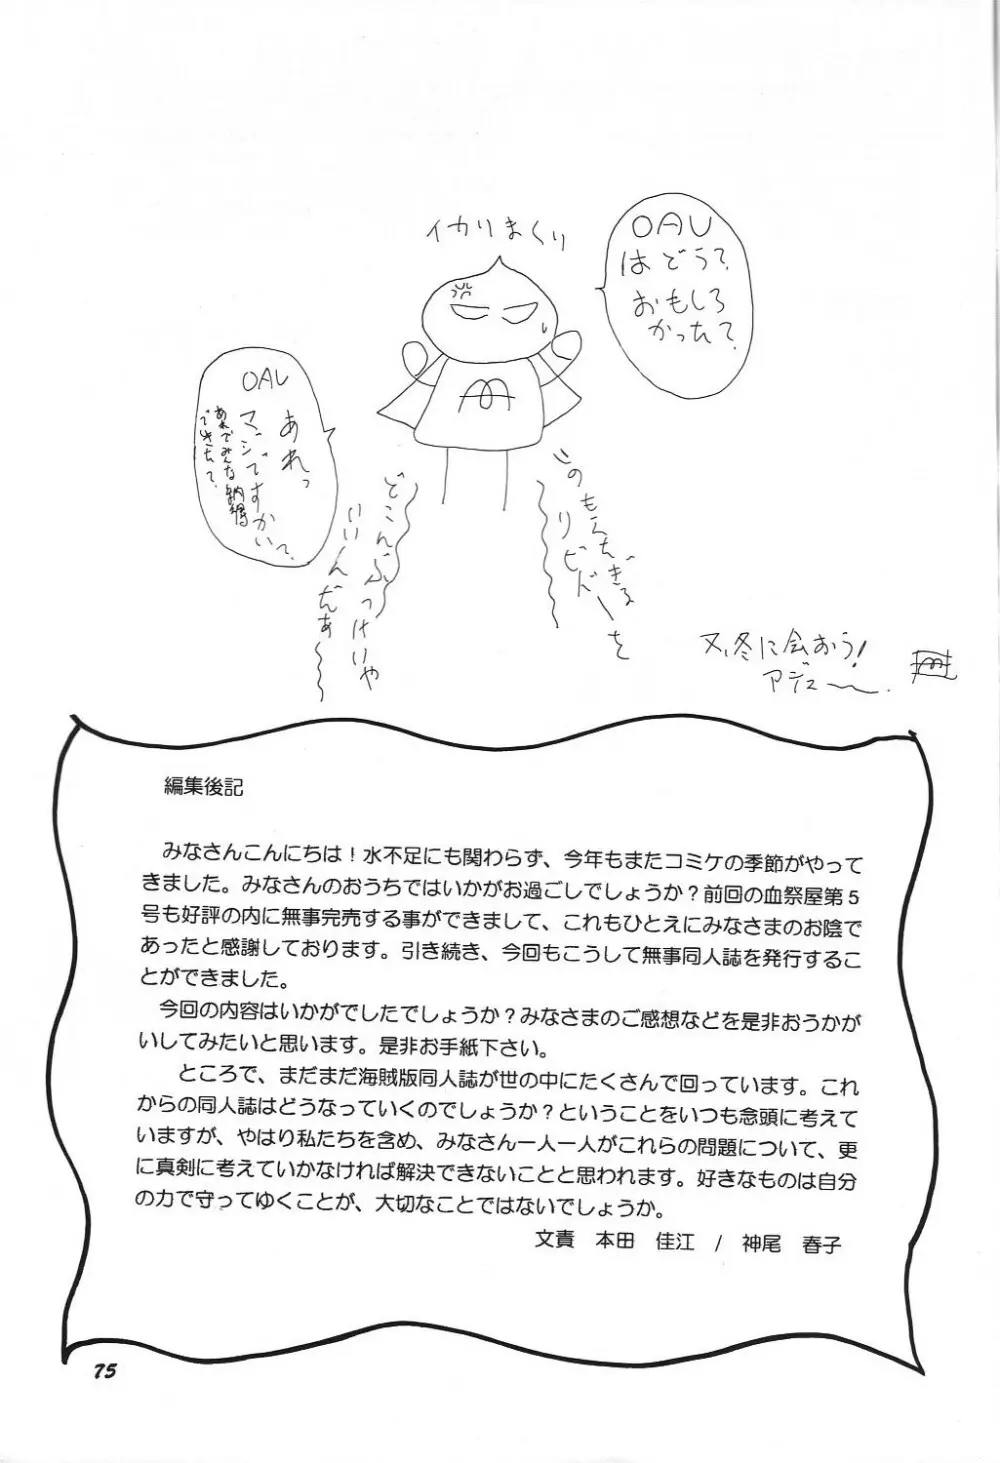 イカりまくり
OAU
はどう?
おもしろ
かった?
OAU
あれっ
マジですかい?
あれでみんな納得
できた?
このもえたぎる
リビドーを
どこにぶつけりゃ
いいんだぁ〜
又、冬に会おう!
アジュ〜.
編集後記
みなさんこんにちは!水不足にも関わらず、今年もまたコミケの季節がやって
きました。みなさんのおうちではいかがお過ごしでしょうか?前回の血祭屋第5
号も好評の内に無事完売する事ができまして、これもひとえにみなさまのお陰で
あったと感謝しております。引き続き、今回もこうして無事同人誌を発行するこ
とができました。
今回の内容はいかがでしたでしょうか?みなさまのご感想などを是非おうかが
いしてみたいと思います。是非お手紙下さい。
ところで、まだまだ海賊版同人誌が世の中にたくさんで回っています。これ
からの同人誌はどうなっていくのでしょうか?ということをいつも念頭に考えて
いますが、やはり私たちを含め、みなさん一人一人がこれらの問題について、更
に真剣に考えていかなければ解決できないことと思われます。好きなものは自分
の力で守ってゆくことが、大切なことではないでしょうか。
文責 本田 佳江 / 神尾 春子
75